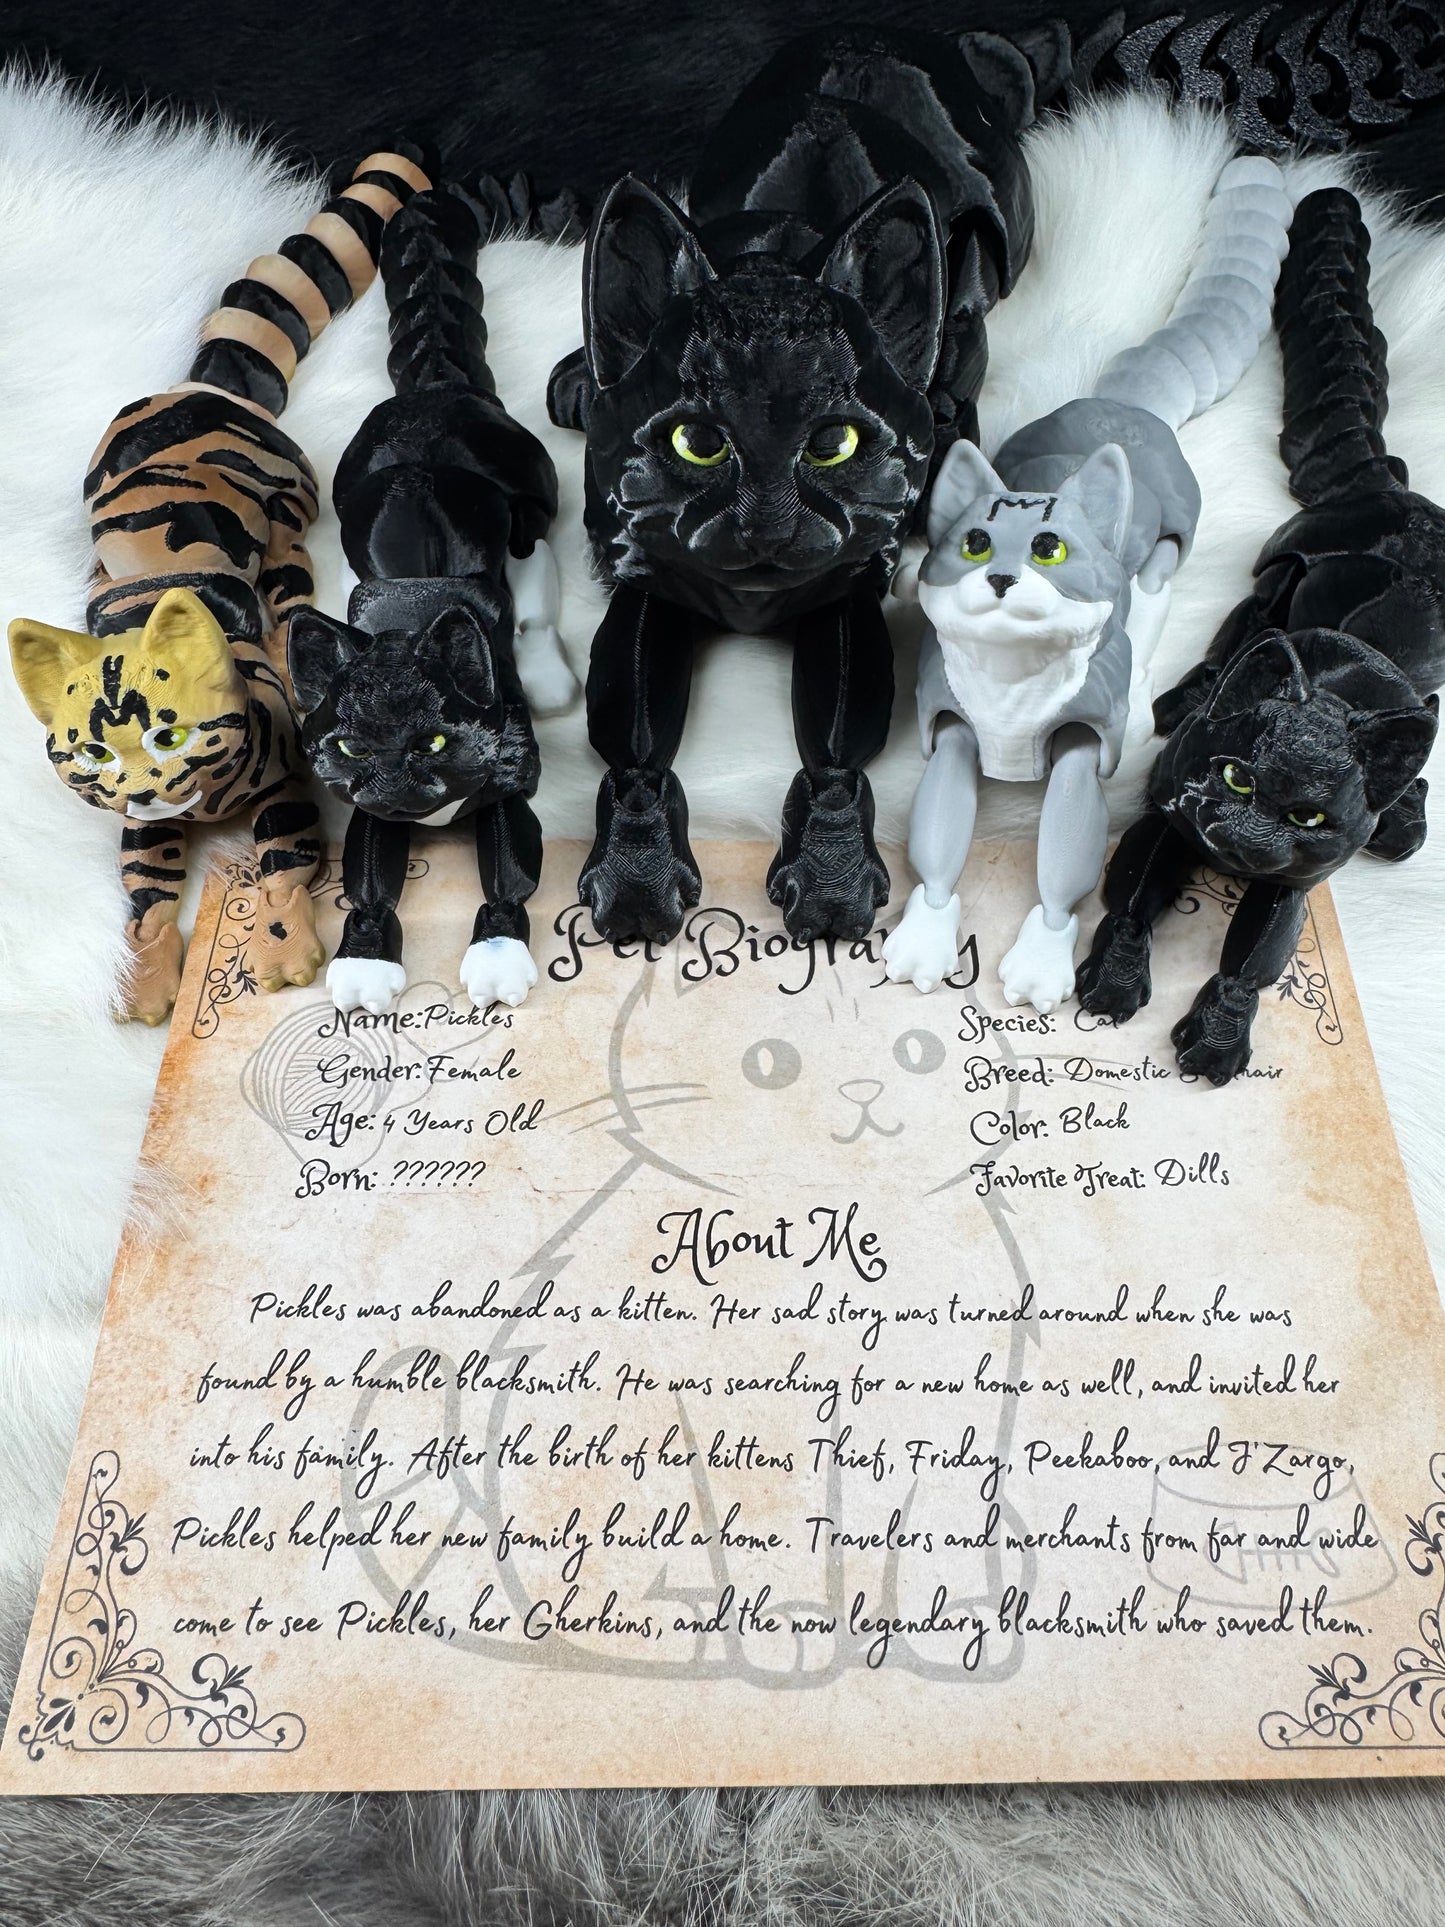 Pet Biography
Name: Pickles
Gender: Female
Age: 4 Years Old
Born: ??????
Species: Cat
Breed: Domestic
Color: Black
Favorite Treat: Dills
About Me
Pickles was abandoned as a kitten. Her sad story was turned around when she was
found by a humble blacksmith. He was searching for a new home as well, and invited her
into his family. After the birth of her kittens Thief, Friday, Peekaboo, and J'Zargo,
Pickles helped her new family build a home. Travelers and merchants from far and wide
come to see Pickles, her Gherkins, and the now legendary blacksmith who saved them.